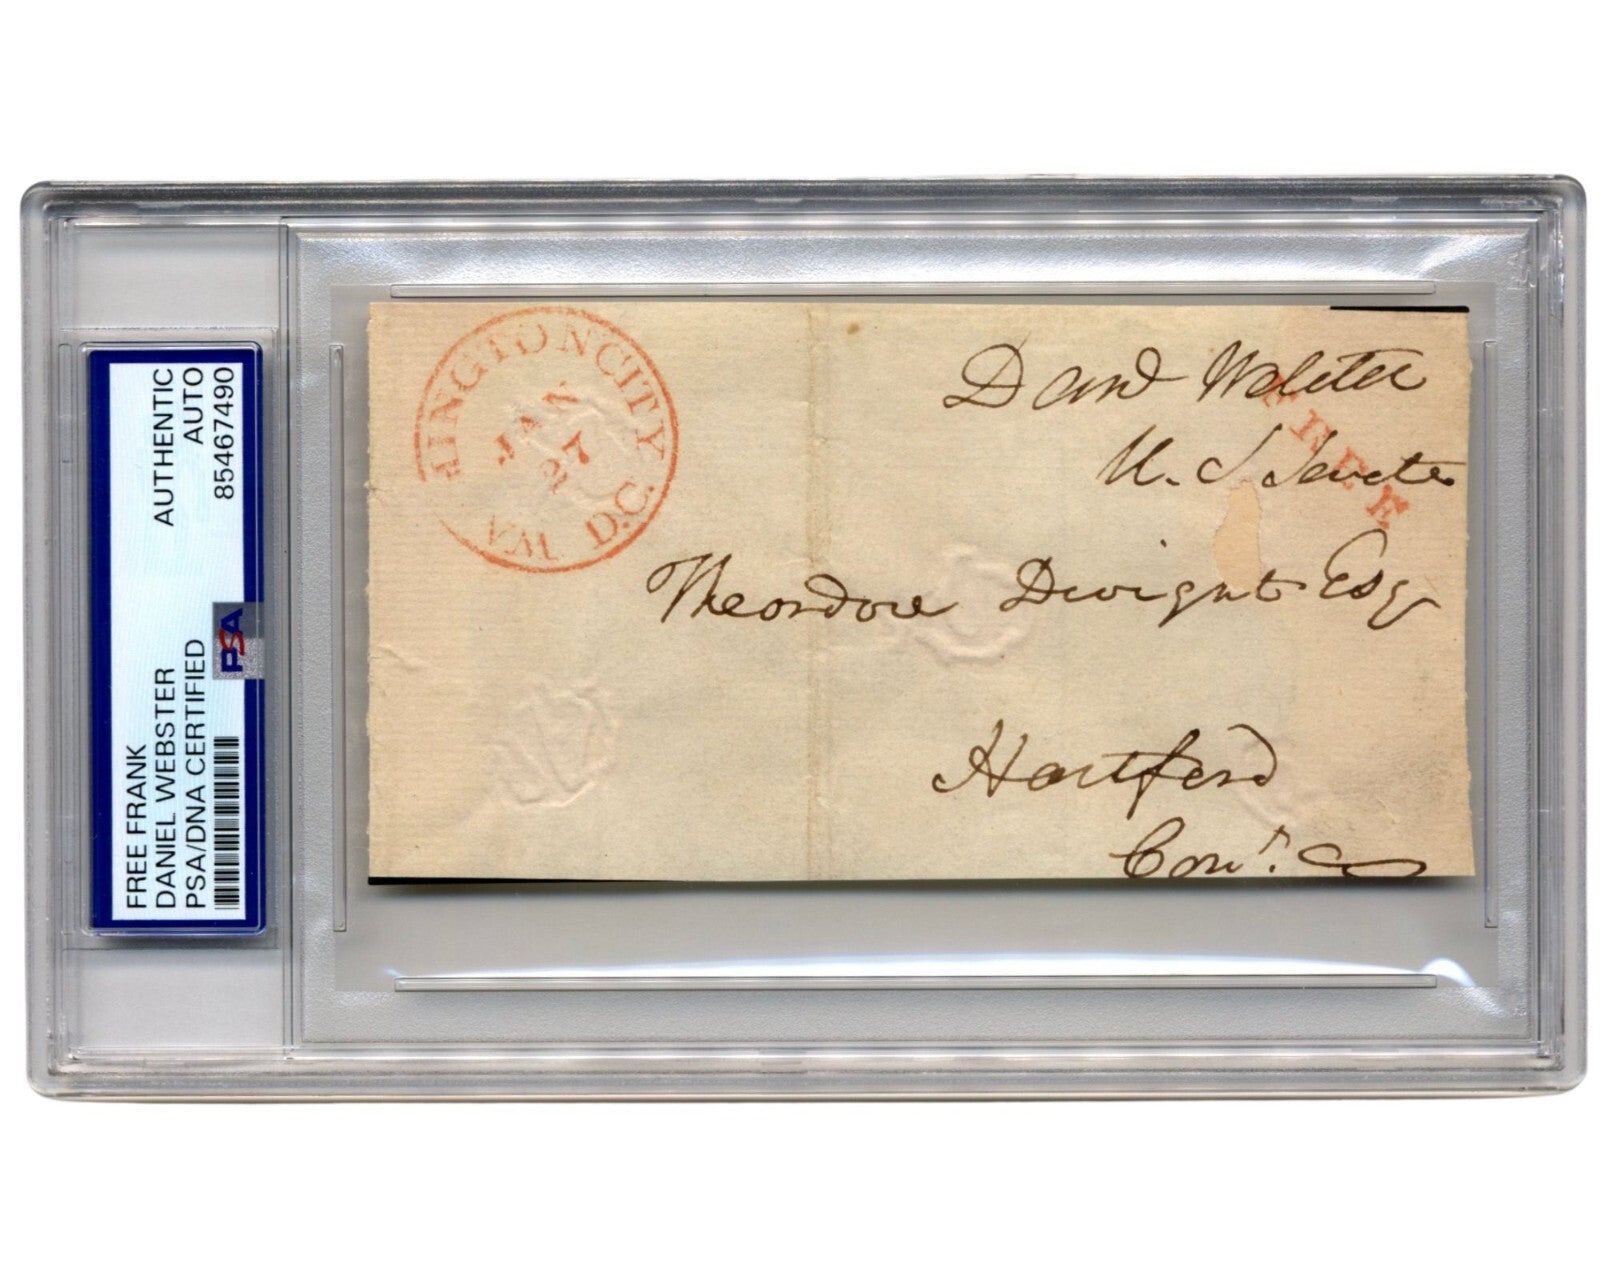 FREE FRANK
DANIEL WEBSTER
PSA/DNA CERTIFIED
AUTHENTIC
AUTO
85467490
PSA
INGTON CITY
JAN
27
D.C.
FREE
Danl Webster
U. S. Senate
Theordore Dwight Esq
Hartford
Conn.